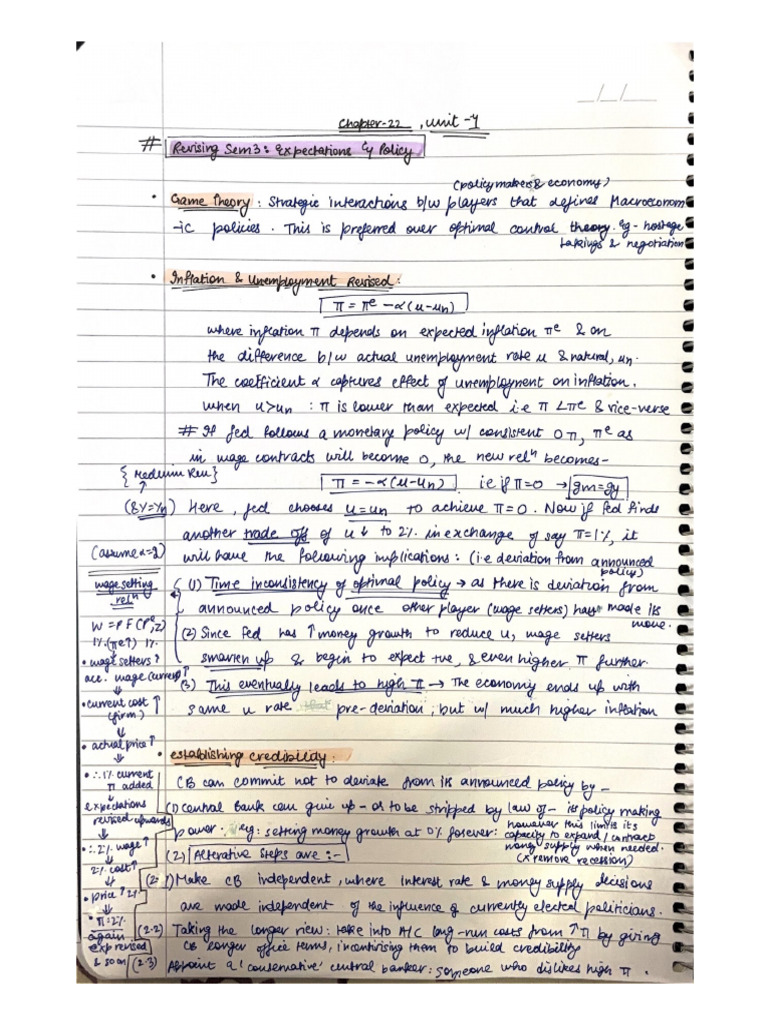 __/__/__
Chapter-22 , Unit -4
# Revising Sem3: Expectations & Policy
(policymakers & economy)
• Game Theory : Strategic interactions b/w players that defines Macroeconom
-ic policies . This is preferred over optimal control theory. Eg- hostage
takings & negotiation
• Inflation & Unemployment Revised :
π = πe - α(u-un)
where inflation π depends on expected inflation πe & on
the difference b/w actual unemployment rate u & natural, un.
The coefficient α captures effect of unemployment on inflation.
when u>un : π is lower than expected i.e π < πe & vice-verse
# If fed follows a monetary policy w/ consistent 0π, πe as
in wage contracts will become 0, the new reln becomes-
π = -α(u-un) i.e if π=0 → gm=gy
(& Y=Yn) Here , fed chooses u=un to achieve π=0. Now if fed finds
another trade off of u↓ to 2% in exchange of say π=1%, it
will have the following implications : (i.e deviation from announced
policy)
(1) Time inconsistency of optimal policy → as there is deviation from
announced policy once other player (wage setters) have made its
move.
(2) Since fed has ↑ money growth to reduce u, wage setters
smarten up & begin to expect +ve, & even higher π further.
(3) This eventually leads to high π → The economy ends up with
same u rate pre-deviation, but w/ much higher inflation
wage setting
reln
W = Pe F(u, z)
1% (πe↑) 1%
↓
• wage setters ↑
acc. wage (current) ↑
↓
• current cost ↑
(firm)
↓
• actual price ↑
↓
• ∴ 1% current
π added
↓
expectations
revised upwards
↓
• ∴ 2% wage ↑
↓
2% cost ↑
↓
• price ↑ 2%
↓
• π: 2%
again
exp revised
& so on
• Establishing Credibility :
CB can commit not to deviate from its announced policy by -
(1) Central Bank can give up - or to be stripped by law of - its policy making
power. eg: setting money growth at 0% forever: however this limits its
capacity to expand / contract
money supply when needed.
(x remove recession)
(2) Alterative Steps are :-
(2.1) Make CB independent , where interest rate & money supply decisions
are made independent of the influence of currently elected politicians.
(2.2) Taking the longer view : take into A/C long-run costs from ↑π by giving
CB longer office terms, incentivising them to build credibility
(2.3) Appoint a 'conservative' central banker: someone who dislikes high π .